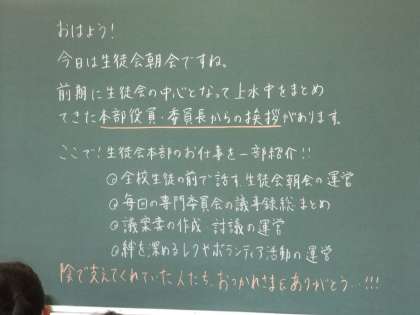 おはよう!
今日は生徒会朝会ですね。
前期に生徒会の中心となって上水中をまとめ
てきた本部役員・委員長からの挨拶があります。
ここで!生徒会本部のお仕事を一部紹介!!
◎全校生徒の前で話す、生徒会朝会の運営
◎毎回の専門委員会の議事録総まとめ
◎議案書の作成 討議の運営
◎絆を深めるレクやボランティア活動の運営
陰で支えてくれていた人たち、おつかれさま&ありがとう…!!!